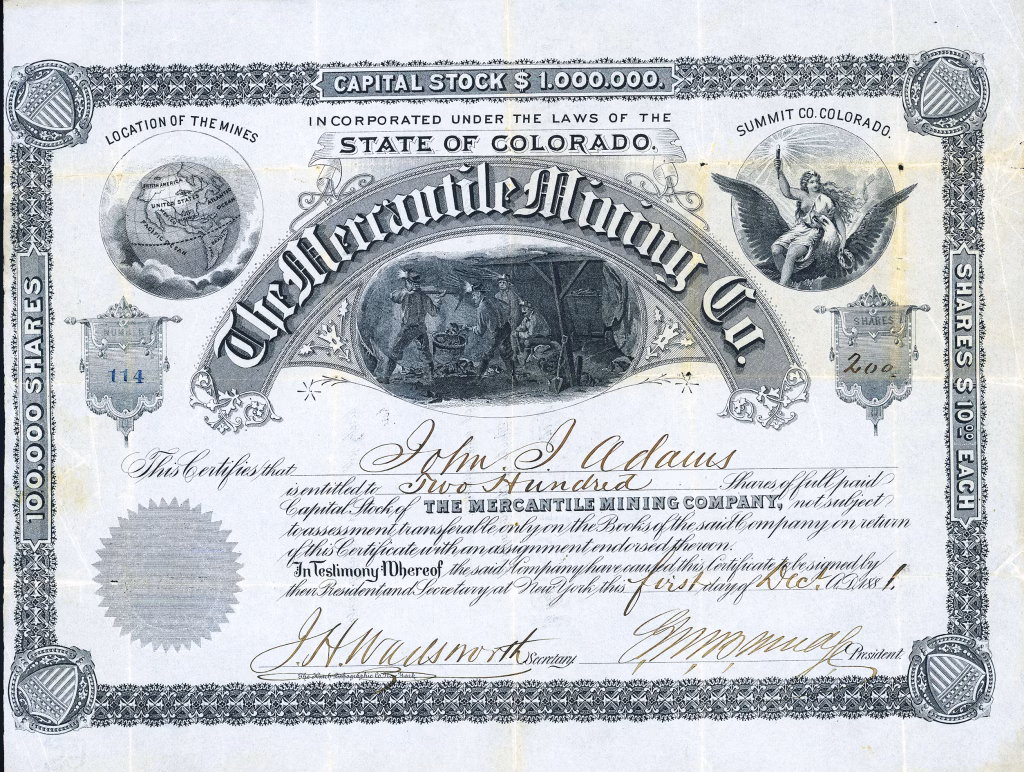 CAPITAL STOCK $ 1.000.000.
INCORPORATED UNDER THE LAWS OF THE
STATE OF COLORADO.
LOCATION OF THE MINES
SUMMIT CO. COLORADO.
UNITED STATES
The Mercantile Mining Co.
100.000 SHARES
SHARES $ 10.00 EACH
114
SHARES
200
This Certifies that John. J. Adams
is entitled to Two Hundred Shares of full paid
Capital Stock of THE MERCANTILE MINING COMPANY, not subject
to assessment, transferable only on the Books of the said Company on return
of this Certificate with an assignment endorsed thereon.
In Testimony Whereof the said Company have caused this Certificate to be signed by
their President and Secretary at New York this first day of Dect. A.D. 1881.
J. H. Wadsworth Secretary
President.